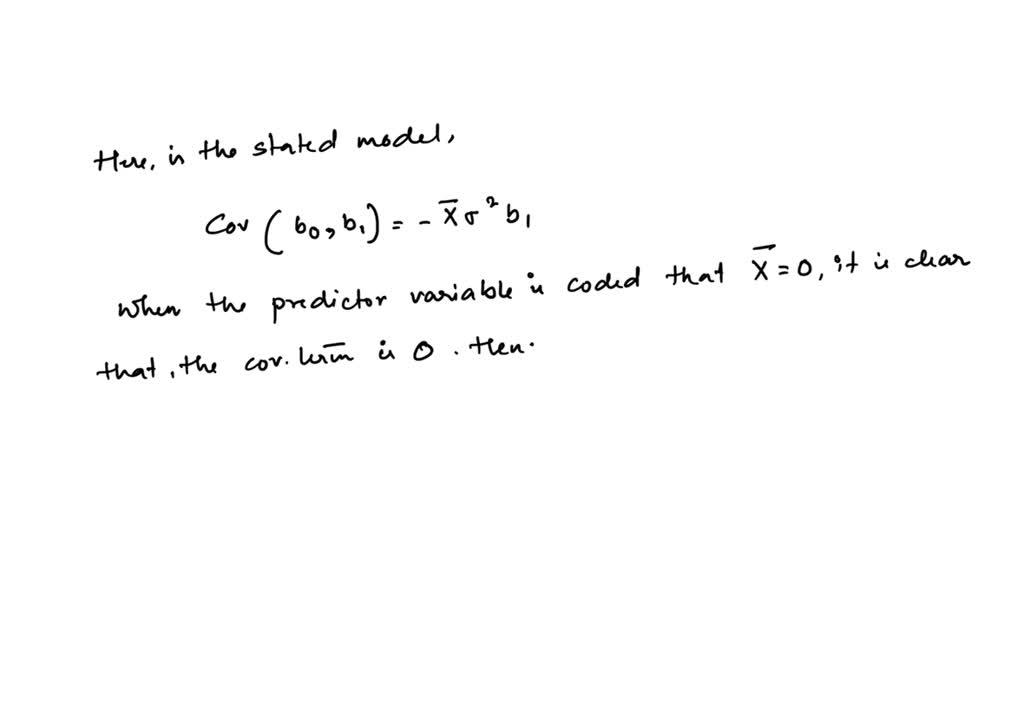 Here, in the stated model,
Cov (b₀, b₁) = - X̄ σ² b₁
When the predictor variable is coded that X̄ = 0, it is clear
that, the cov. term is 0. then.